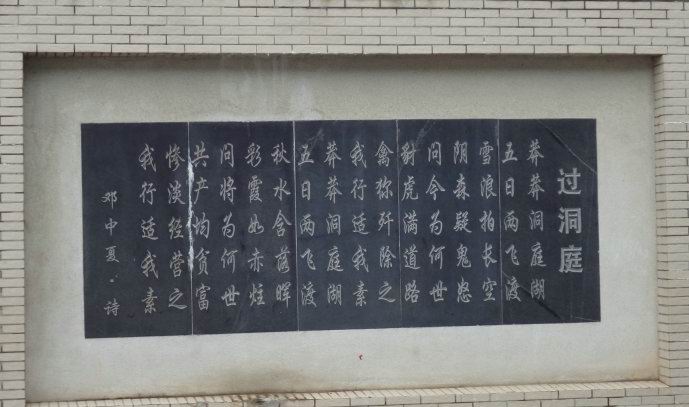 过洞庭
莽莽洞庭湖
五日两飞渡
雪浪拍长空
阴森疑鬼怒
问今为何世
豺虎满道路
禽狝歼除之
我行适我素
莽莽洞庭湖
五日两飞渡
秋水含落晖
彩霞如赤炷
问将为何世
共产均贫富
惨淡经营之
我行适我素
邓中夏·诗